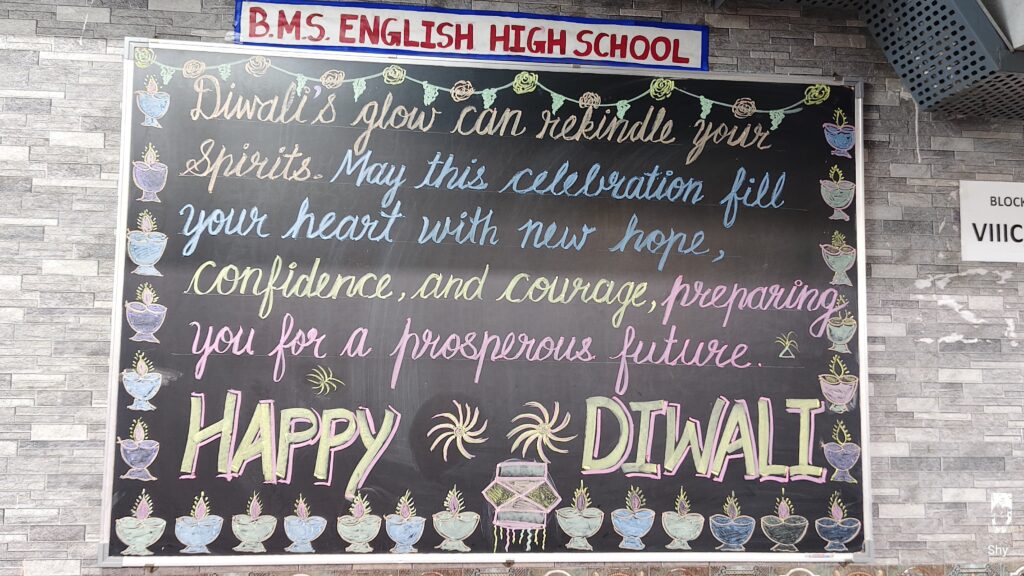 B.M.S. ENGLISH HIGH SCHOOL
Diwali's glow can rekindle your
Spirits. May this celebration fill
your heart with new hope,
confidence, and courage, preparing
you for a prosperous future.
HAPPY DIWALI
BLOCK
VIIIC
Shy